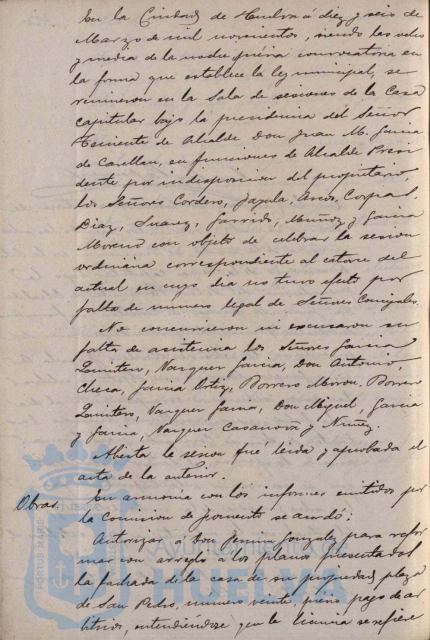 En la Ciudad de Huelva á diez y seis de
Marzo de mil novecientos, siendo las ocho
y media de la noche prévia convocatoria en
la forma que establece la ley municipal, se
reunieron en la Sala de sesiones de la Casa
capitular bajo la presidencia del Señor
Teniente de Alcalde Don Juan M. Garcia
de Casellas, en funciones de Alcalde Presi
dente por indisposicion del propietario
los Señores Cordero, Jazula, Arcos, Corpas,
Diaz, Suarez, Garrido, Muñoz y Garcia
Moreno con objeto de celebrar la sesion
ordinaria correspondiente al catorce del
actual en cuyo dia no tuvo efecto por
falta de numero legal de Señores Concejales.
No concurrieron ni excusaron su
falta de asistencia los Señores Garcia
Quintero, Vazquez Garcia, Don Antonio,
Checa, Garcia Ortiz, Borrero Moron, Borrero
Quintero, Vazquez Garcia, Don Miguel, Garcia
y Garcia, Vazquez Casanova y Nuñez.
Abierta la sesion fué leida y aprobada el
acta de la anterior.
Obras.
En armonia con los informes emitidos por
la Comision de fomento se acordó:
Autorizar á Don Fermin Gonzalez para refor
mar con arreglo á los planos presentados
la fachada de la casa de su propiedad plaza
de San Pedro, numero veinte, prévio pago de ar
bitrios, entendiendose que la licencia se refiere
AYUNTAMIENTO
HUELVA